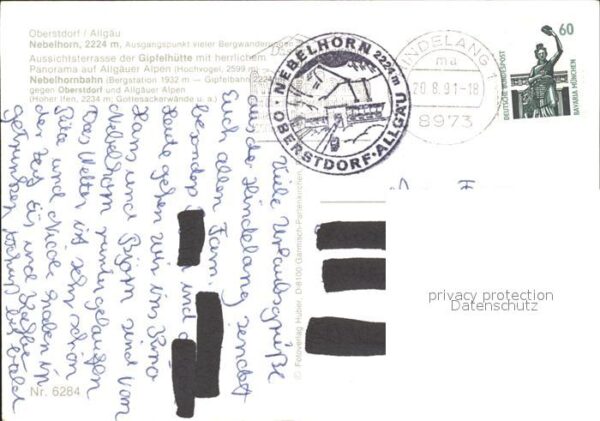 Oberstdorf / Allgäu
Nebelhorn, 2224 m, Ausgangspunkt vieler Bergwanderungen
Aussichtsterrasse der Gipfelhütte mit herrlichem
Panorama auf Allgäuer Alpen (Hochvogel, 2599 m)
Nebelhornbahn (Bergstation 1932 m – Gipfelbahn 2224
gegen Oberstdorf und Allgäuer Alpen
(Hoher Ifen, 2234 m; Gottesackerwände u. a.)
NEBELHORN 2224 m
OBERSTDORF · ALLGÄU
HINDELANG 1
ma
20.8.91-18
8973
60
DEUTSCHE BUNDESPOST
BAVARIA MÜNCHEN
Viele Urlaubsgrüße
aus Hindelang sendet
Euch allen Fam.
besonders und
Heute gehen wir ins Kino
Hans und Björn sind vom
Nebelhorn runtergelaufen
Das Wetter ist sehr schön
Rita und Nicole haben in
der Zeit Eis und Kaffee
getrunken bis bald
© Fotoverlag Huber, D-8100 Garmisch-Partenkirchen
Nr. 6284
privacy protection
Datenschutz